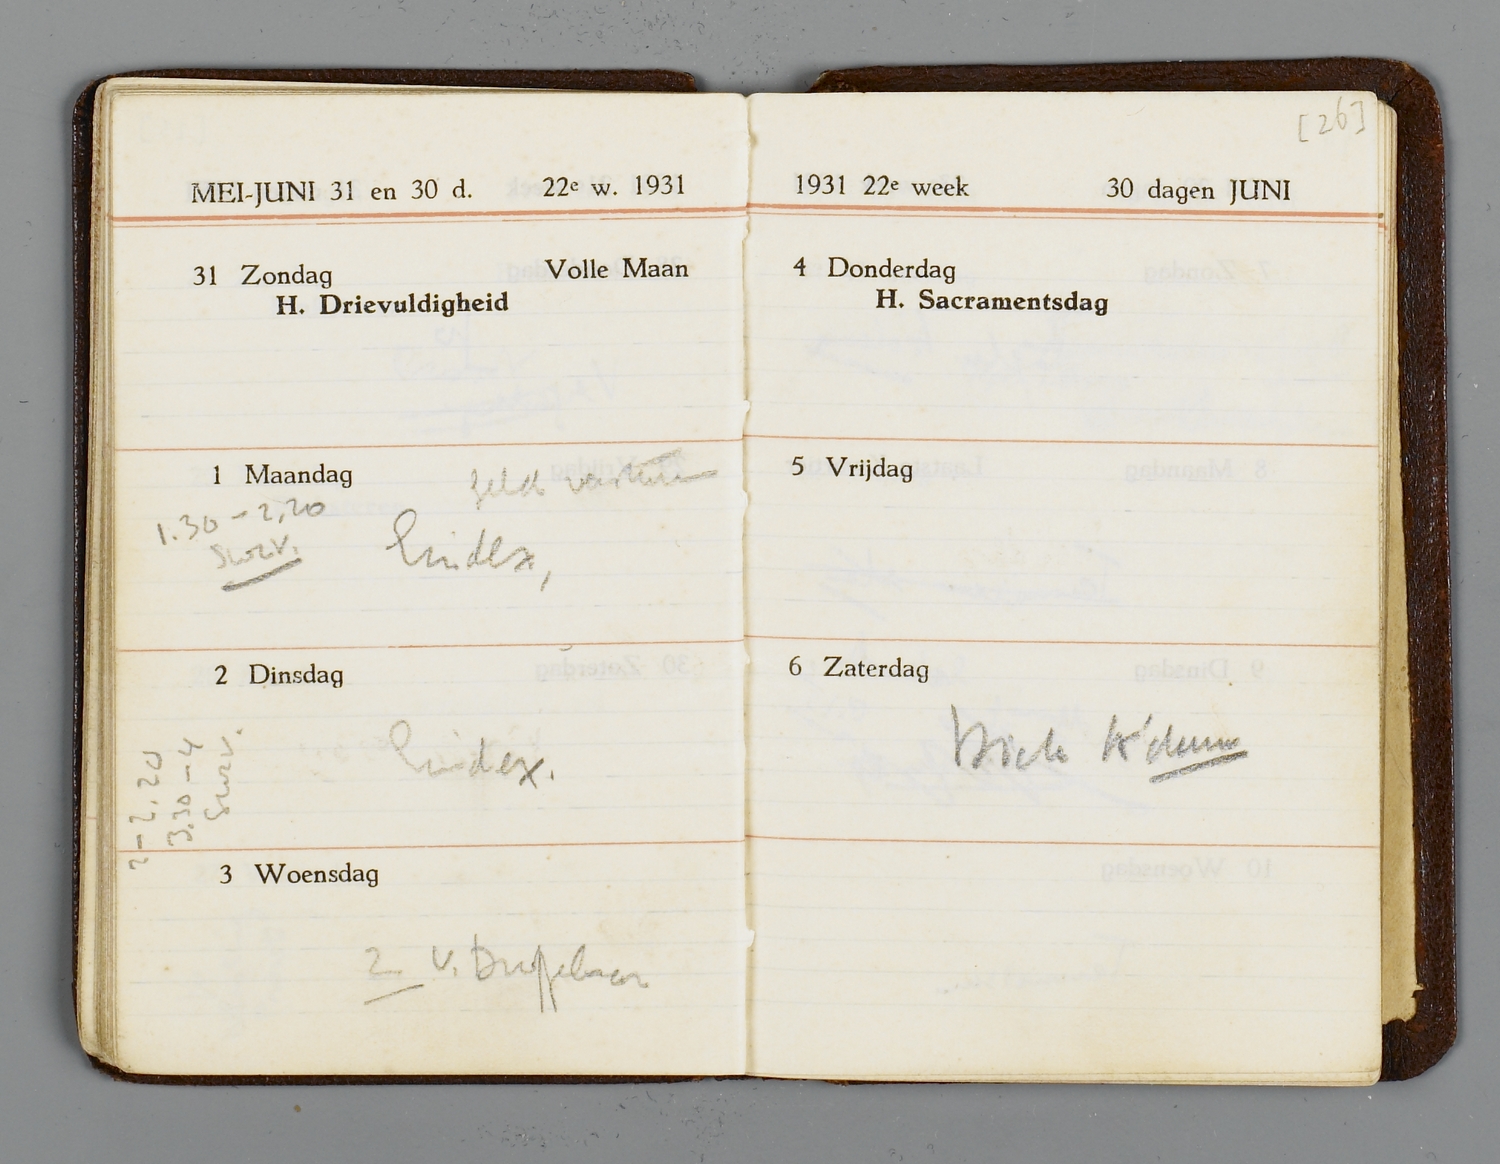 MEI-JUNI 31 en 30 d. 22e w. 1931
31 Zondag Volle Maan
H. Drievuldigheid
1 Maandag
geld
1.30 - 2.20
Eindex,
2 Dinsdag
Eindex.
2 - 2.20
3.30 - 4
3 Woensdag
2 v. Duffelaar
[26]
1931 22e week 30 dagen JUNI
4 Donderdag
H. Sacramentsdag
5 Vrijdag
6 Zaterdag